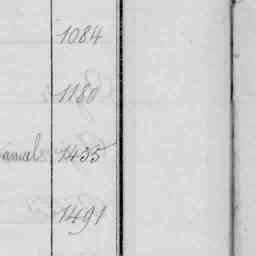 1084
1180
anuel 1435
1491